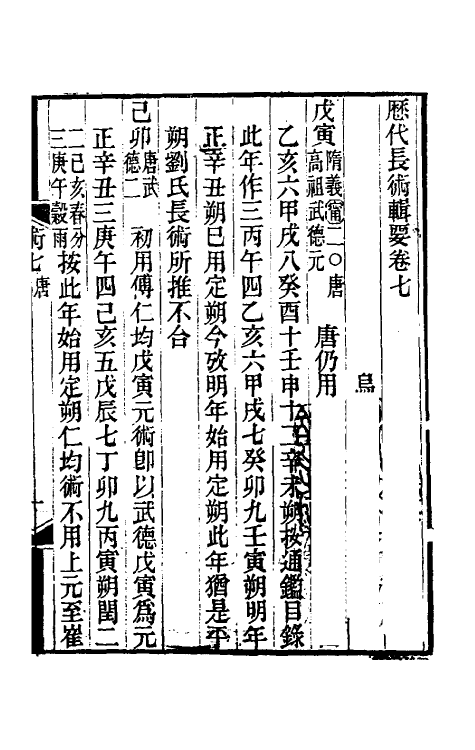 歷代長術輯要卷七
烏
戊寅隋義甯二〇唐高祖武德元 唐仍用
乙亥六甲戌八癸酉十壬申十二辛未朔按通鑑目錄
此年作三丙午四乙亥六甲戌七癸卯九壬寅朔明年
正辛丑朔已用定朔今攷明年始用定朔此年猶是平
朔劉氏長術所推不合
己卯唐武德二 初用傅仁均戊寅元術卽以武德戊寅爲元
正辛丑三庚午四己亥五戊辰七丁卯九丙寅朔閏二
二己亥春分三庚午穀雨按此年始用定朔仁均術不用上元至崔
術七 唐 一